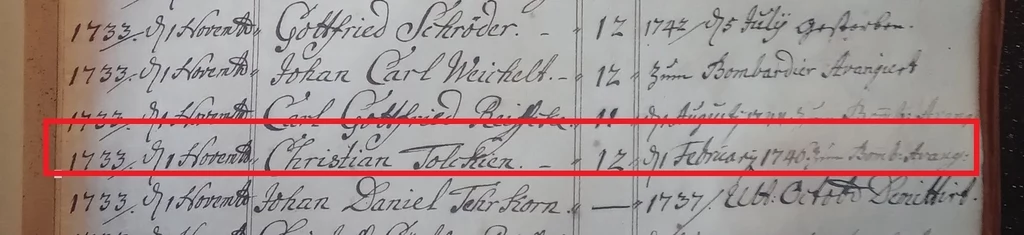 1733. d 1 Novemb. Gottfried Schröder. - 12 1742/ d 5 July gestorben.
1733. d 1 Novemb. Johan Carl Weichelt. - 12 Zum Bombardier Avangiert
1733. d 1 Novemb. Carl Gottfried d 1 August
1733. d 1 Novemb. Christian Tolckien. - 12 d 1 February 1746 Zum Bomb. Avang:
1733. d 1 Novemb. Johan Daniel Tehrkorn - 1737/ Ult. Octob Dimittirt.